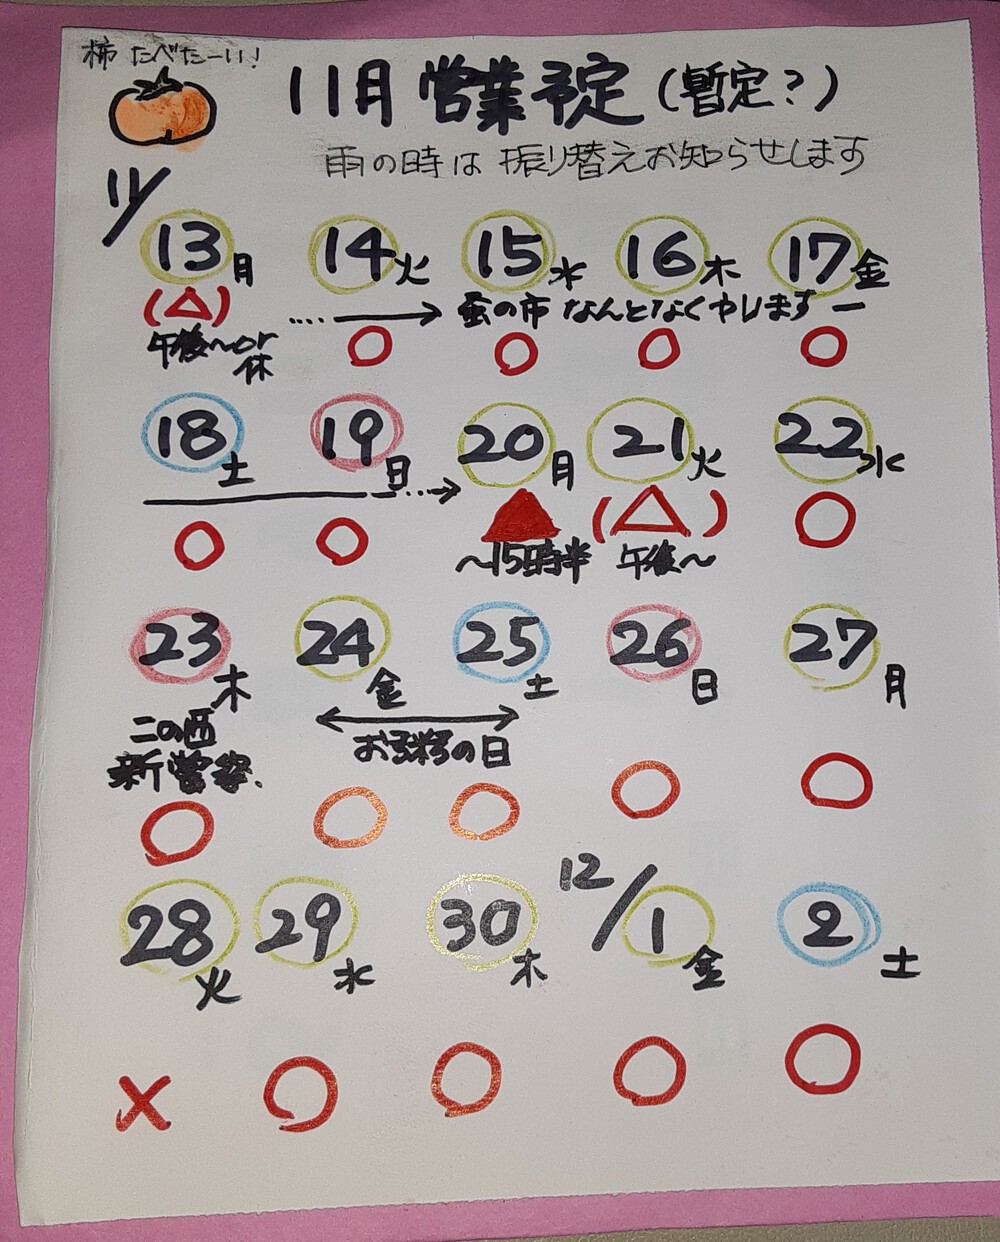 柿 たべたーい!
11月 営業予定 (暫定?)
雨の時は 振り替えお知らせします
11/
13月 14火 15水 16木 17金
(△) ····→ 蚤の市 なんとなくやします ー
午後〜or
休
○ ○ ○ ○
18土 19日 20月 21火 22水
→
○ ○ ▲ (△) ○
〜15時半 午後〜
23木 24金 25土 26日 27月
二の酉 ↔
新嘗祭. お弥弥の日
○ ○ ○ ○ ○
28火 29水 30木 12/1金 2土
× ○ ○ ○ ○